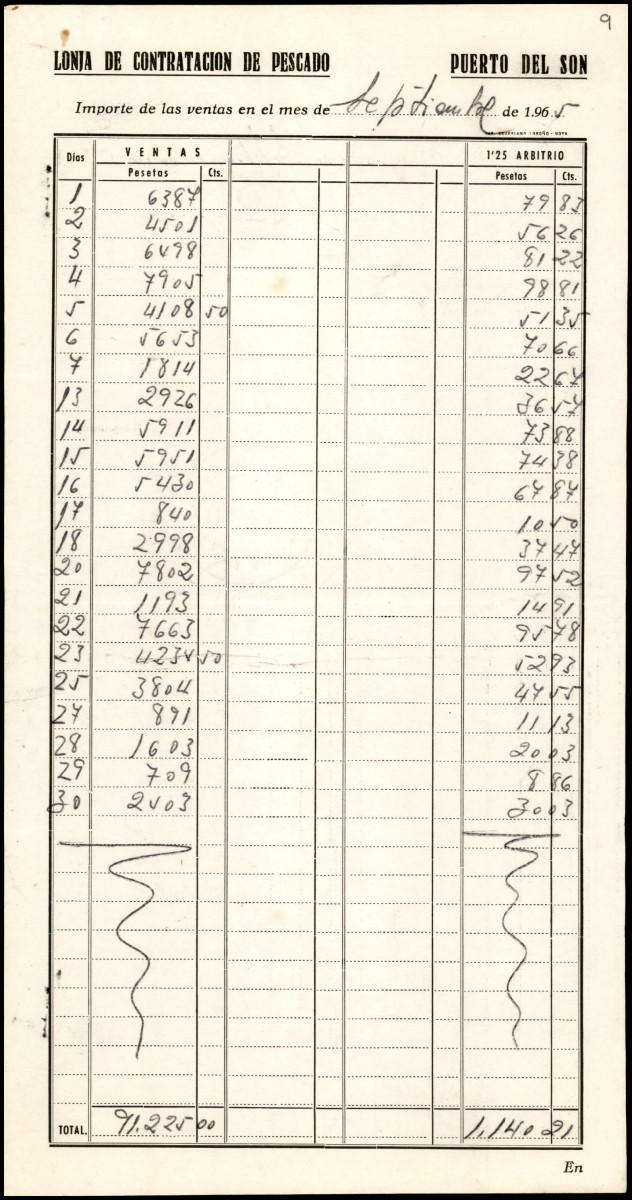 9
LONJA DE CONTRATACION DE PESCADO PUERTO DEL SON
Importe de las ventas en el mes de Septiembre de 1.965
Días VENTAS 1'25 ARBITRIO
Pesetas Cts. Pesetas Cts.
1 6387 79 83
2 4501 56 26
3 6498 81 22
4 7905 98 81
5 4108 50 51 35
6 5653 70 66
7 1814 22 67
13 2926 36 57
14 5911 73 88
15 5951 74 38
16 5430 67 87
17 840 10 50
18 2998 37 47
20 7802 97 52
21 1193 14 91
22 7663 95 78
23 4234 50 52 93
25 3804 47 55
27 891 11 13
28 1603 20 03
29 709 8 86
30 2403 30 03
TOTAL. 91.225 00 1,140 21
En